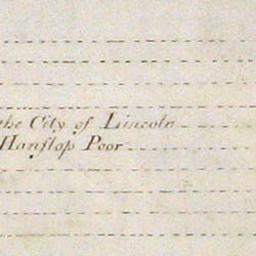 the City of Lincoln
Hanslop Poor